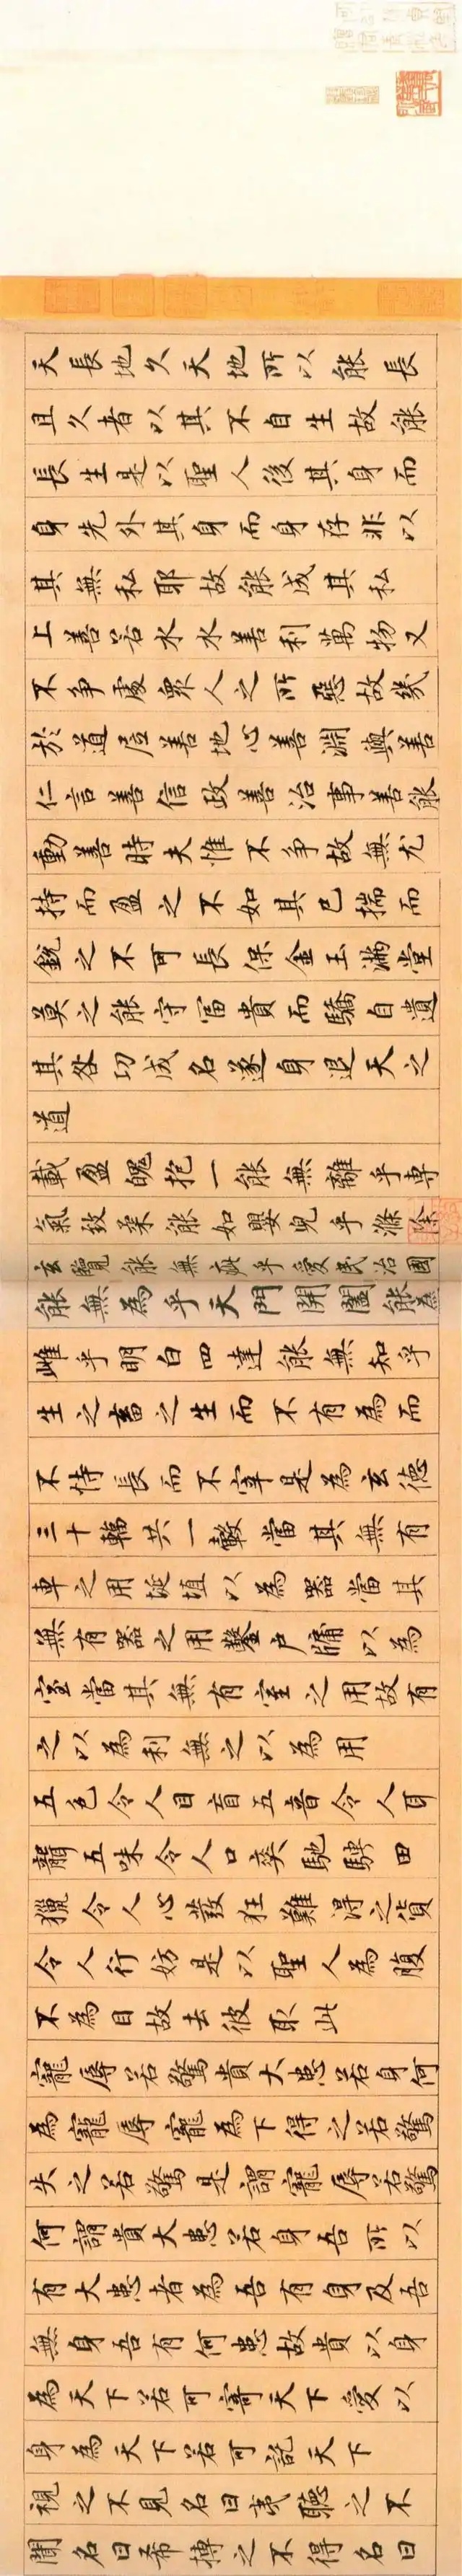 天長地久天地所以能長
且久者以其不自生故能
長生是以聖人後其身而
身先外其身而身存非以
其無私耶故能成其私
上善若水水善利萬物又
不爭處衆人之所惡故幾
於道居善地心善淵與善
仁言善信政善治事善能
動善時夫惟不爭故無尤
持而盈之不如其已揣而
銳之不可長保金玉滿堂
莫之能守富貴而驕自遺
其咎功成名遂身退天之
道
載盈魄抱一能無離乎專
氣致柔能如嬰兒乎滌除
玄覽能無疵乎愛民治國
能無為乎天門開闔能為
雌乎明白四達能無知乎
生之畜之生而不有為而
不恃長而不宰是為玄德
三十輻共一轂當其無有
車之用埏埴以為器當其
無有器之用鑿戶牖以為
室當其無有室之用故有
之以為利無之以為用
五色令人目盲五音令人耳
聾五味令人口爽馳騁田
獵令人心發狂難得之貨
令人行妨是以聖人為腹
不為目故去彼取此
寵辱若驚貴大患若身何
為寵辱寵為下得之若驚
失之若驚是謂寵辱若驚
何謂貴大患若身吾所以
有大患者為吾有身及吾
無身吾有何患故貴以身
為天下若可寄天下愛以
身為天下若可託天下
視之不見名曰夷聽之不
聞名曰希搏之不得名曰